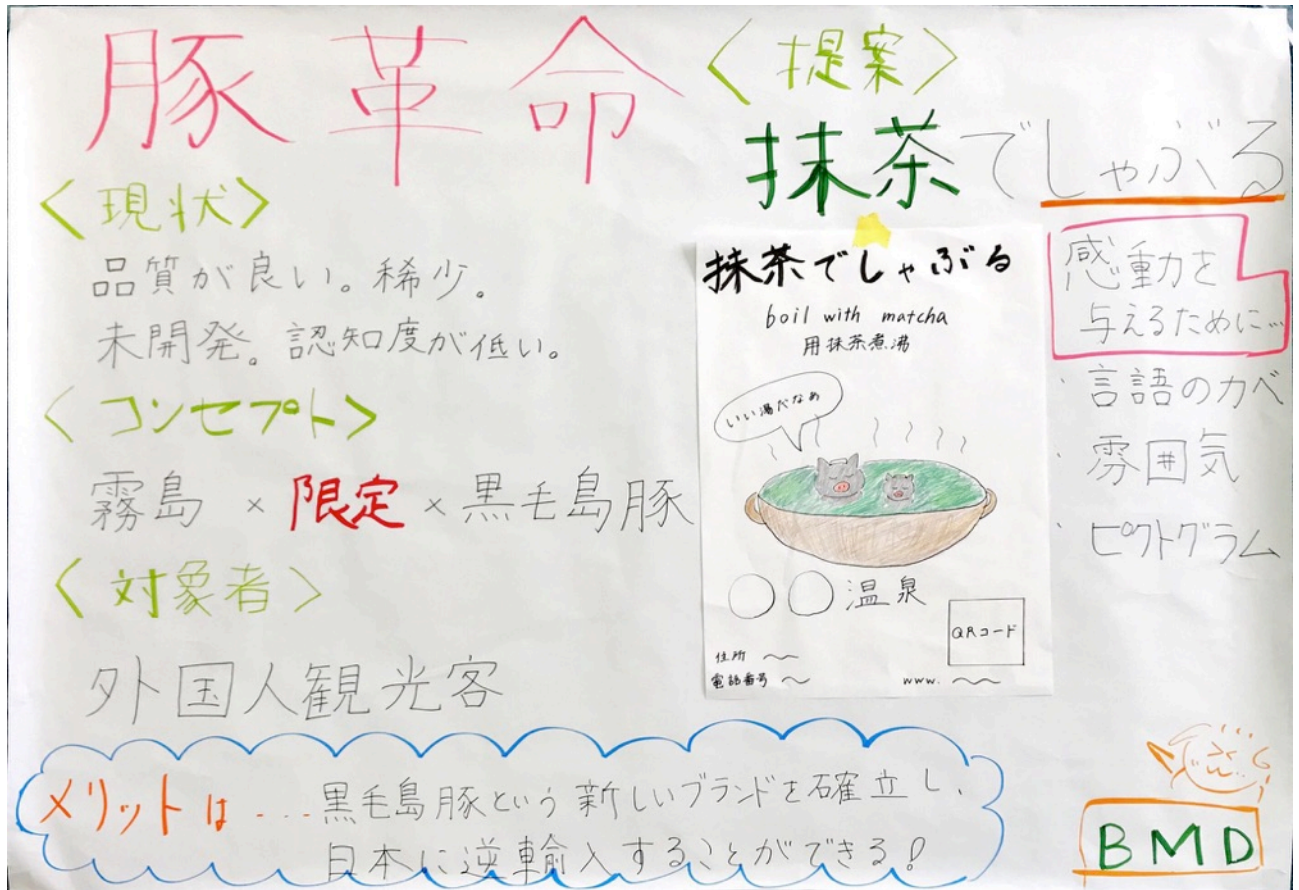 豚革命
<現状>
品質が良い。稀少。
未開発。認知度が低い。
<コンセプト>
霧島 × 限定 × 黒毛島豚
<対象者>
外国人観光客
<提案>
抹茶でしゃぶる
抹茶でしゃぶる
boil with matcha
用抹茶煮沸
いい湯だなぁ
○○温泉
QRコード
住所 〜
電話番号 〜
www. 〜
感動を
与えるために…
・言語のカベ
・雰囲気
・ピクトグラム
メリットは....黒毛島豚という新しいブランドを確立し、
日本に逆輸入することができる!
BMD